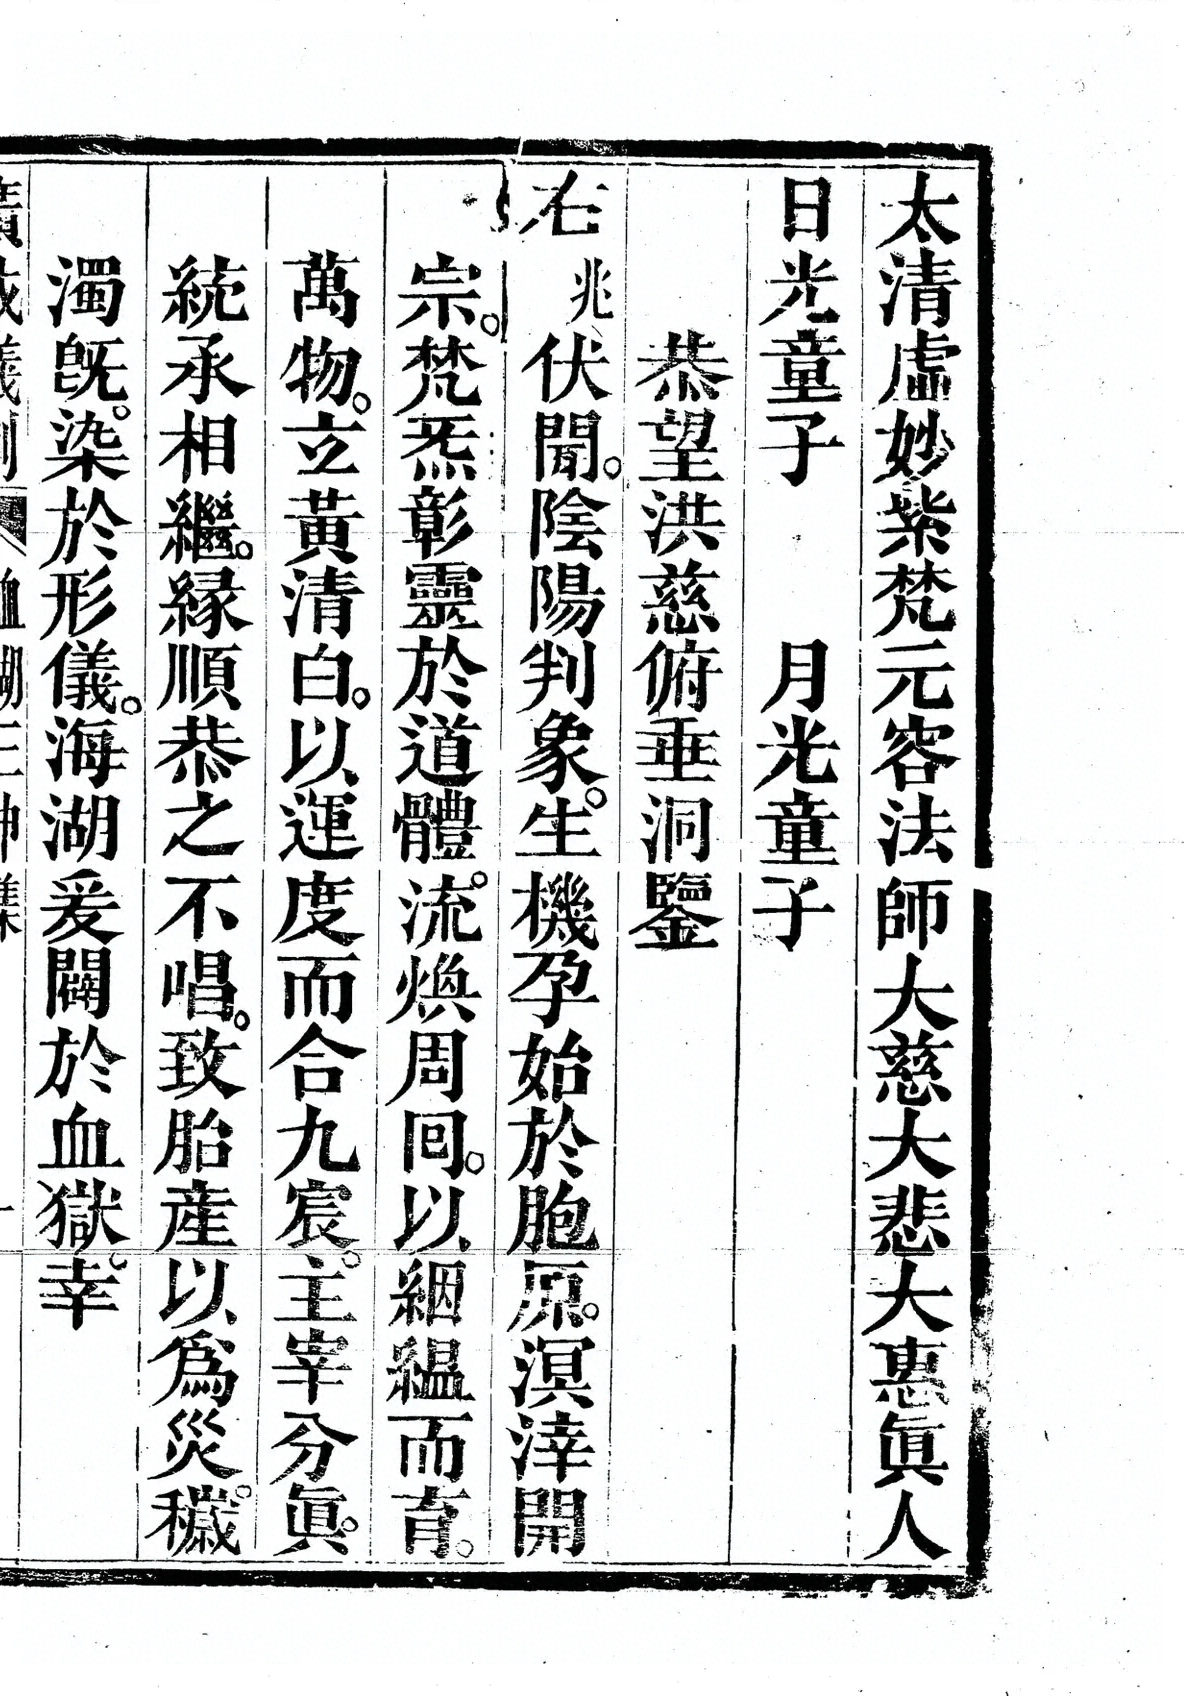 太清虛妙紫梵元容法師大慈大悲大惠眞人
日光童子　月光童子
恭望洪慈俯垂洞鑒
右兆伏聞。陰陽判象。生機孕始於胞原。溟涬開
宗。梵炁彰靈於道體。流煥周回。以絪縕而育。
萬物。立黃清白。以運度而合九宸。主宰分眞。
統承相繼。緣順恭之不唱。致胎產以為災。穢
濁既。染於形儀。海湖爰闢於血獄。幸